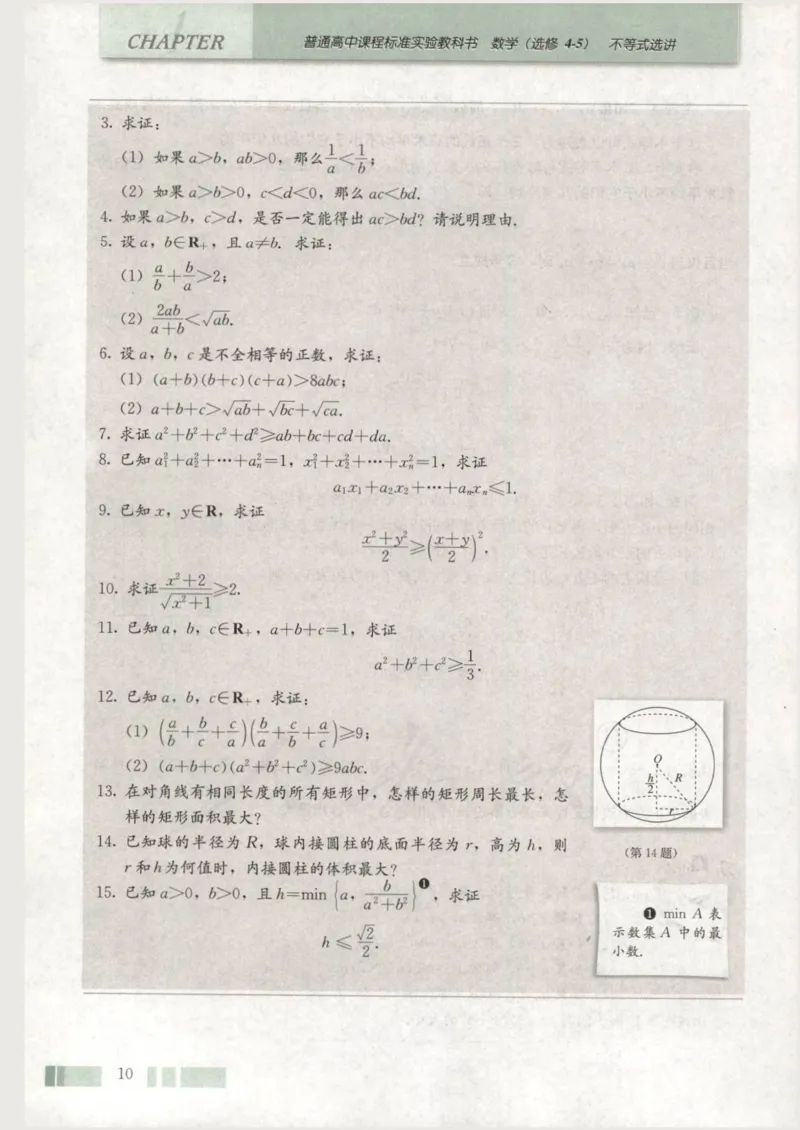 CHAPTER 1
普通高中课程标准实验教科书 数学(选修 4-5) 不等式选讲
3. 求证:
(1) 如果a>b, ab>0, 那么1/a<1/b;
(2) 如果a>b>0, c<d<0, 那么 ac<bd.
4. 如果a>b, c>d, 是否一定能得出 ac>bd? 请说明理由.
5. 设 a, b∈R₊, 且 a≠b. 求证:
(1) a/b+b/a>2;
(2) 2ab/(a+b)<√ab.
6. 设 a, b, c 是不全相等的正数, 求证:
(1) (a+b)(b+c)(c+a)>8abc;
(2) a+b+c>√ab+√bc+√ca.
7. 求证 a²+b²+c²+d²≥ab+bc+cd+da.
8. 已知 a₁²+a₂²+⋯+aₙ²=1, x₁²+x₂²+⋯+xₙ²=1, 求证
a₁x₁+a₂x₂+⋯+aₙxₙ≤1.
9. 已知 x, y∈R, 求证
(x²+y²)/2≥((x+y)/2)².
10. 求证 (x²+2)/√(x²+1)≥2.
11. 已知 a, b, c∈R₊, a+b+c=1, 求证
a²+b²+c²≥1/3.
12. 已知 a, b, c∈R₊, 求证:
(1) (a/b+b/c+c/a)(b/a+c/b+a/c)≥9;
(2) (a+b+c)(a²+b²+c²)≥9abc.
13. 在对角线有相同长度的所有矩形中, 怎样的矩形周长最长, 怎
样的矩形面积最大?
14. 已知球的半径为 R, 球内接圆柱的底面半径为 r, 高为 h, 则
r 和 h 为何值时, 内接圆柱的体积最大?
15. 已知 a>0, b>0, 且 h=min{a, b/(a²+b²)}❶, 求证
h≤√2/2.
O
h/2
R
r
(第14题)
❶ min A 表
示数集 A 中的最
小数.
10